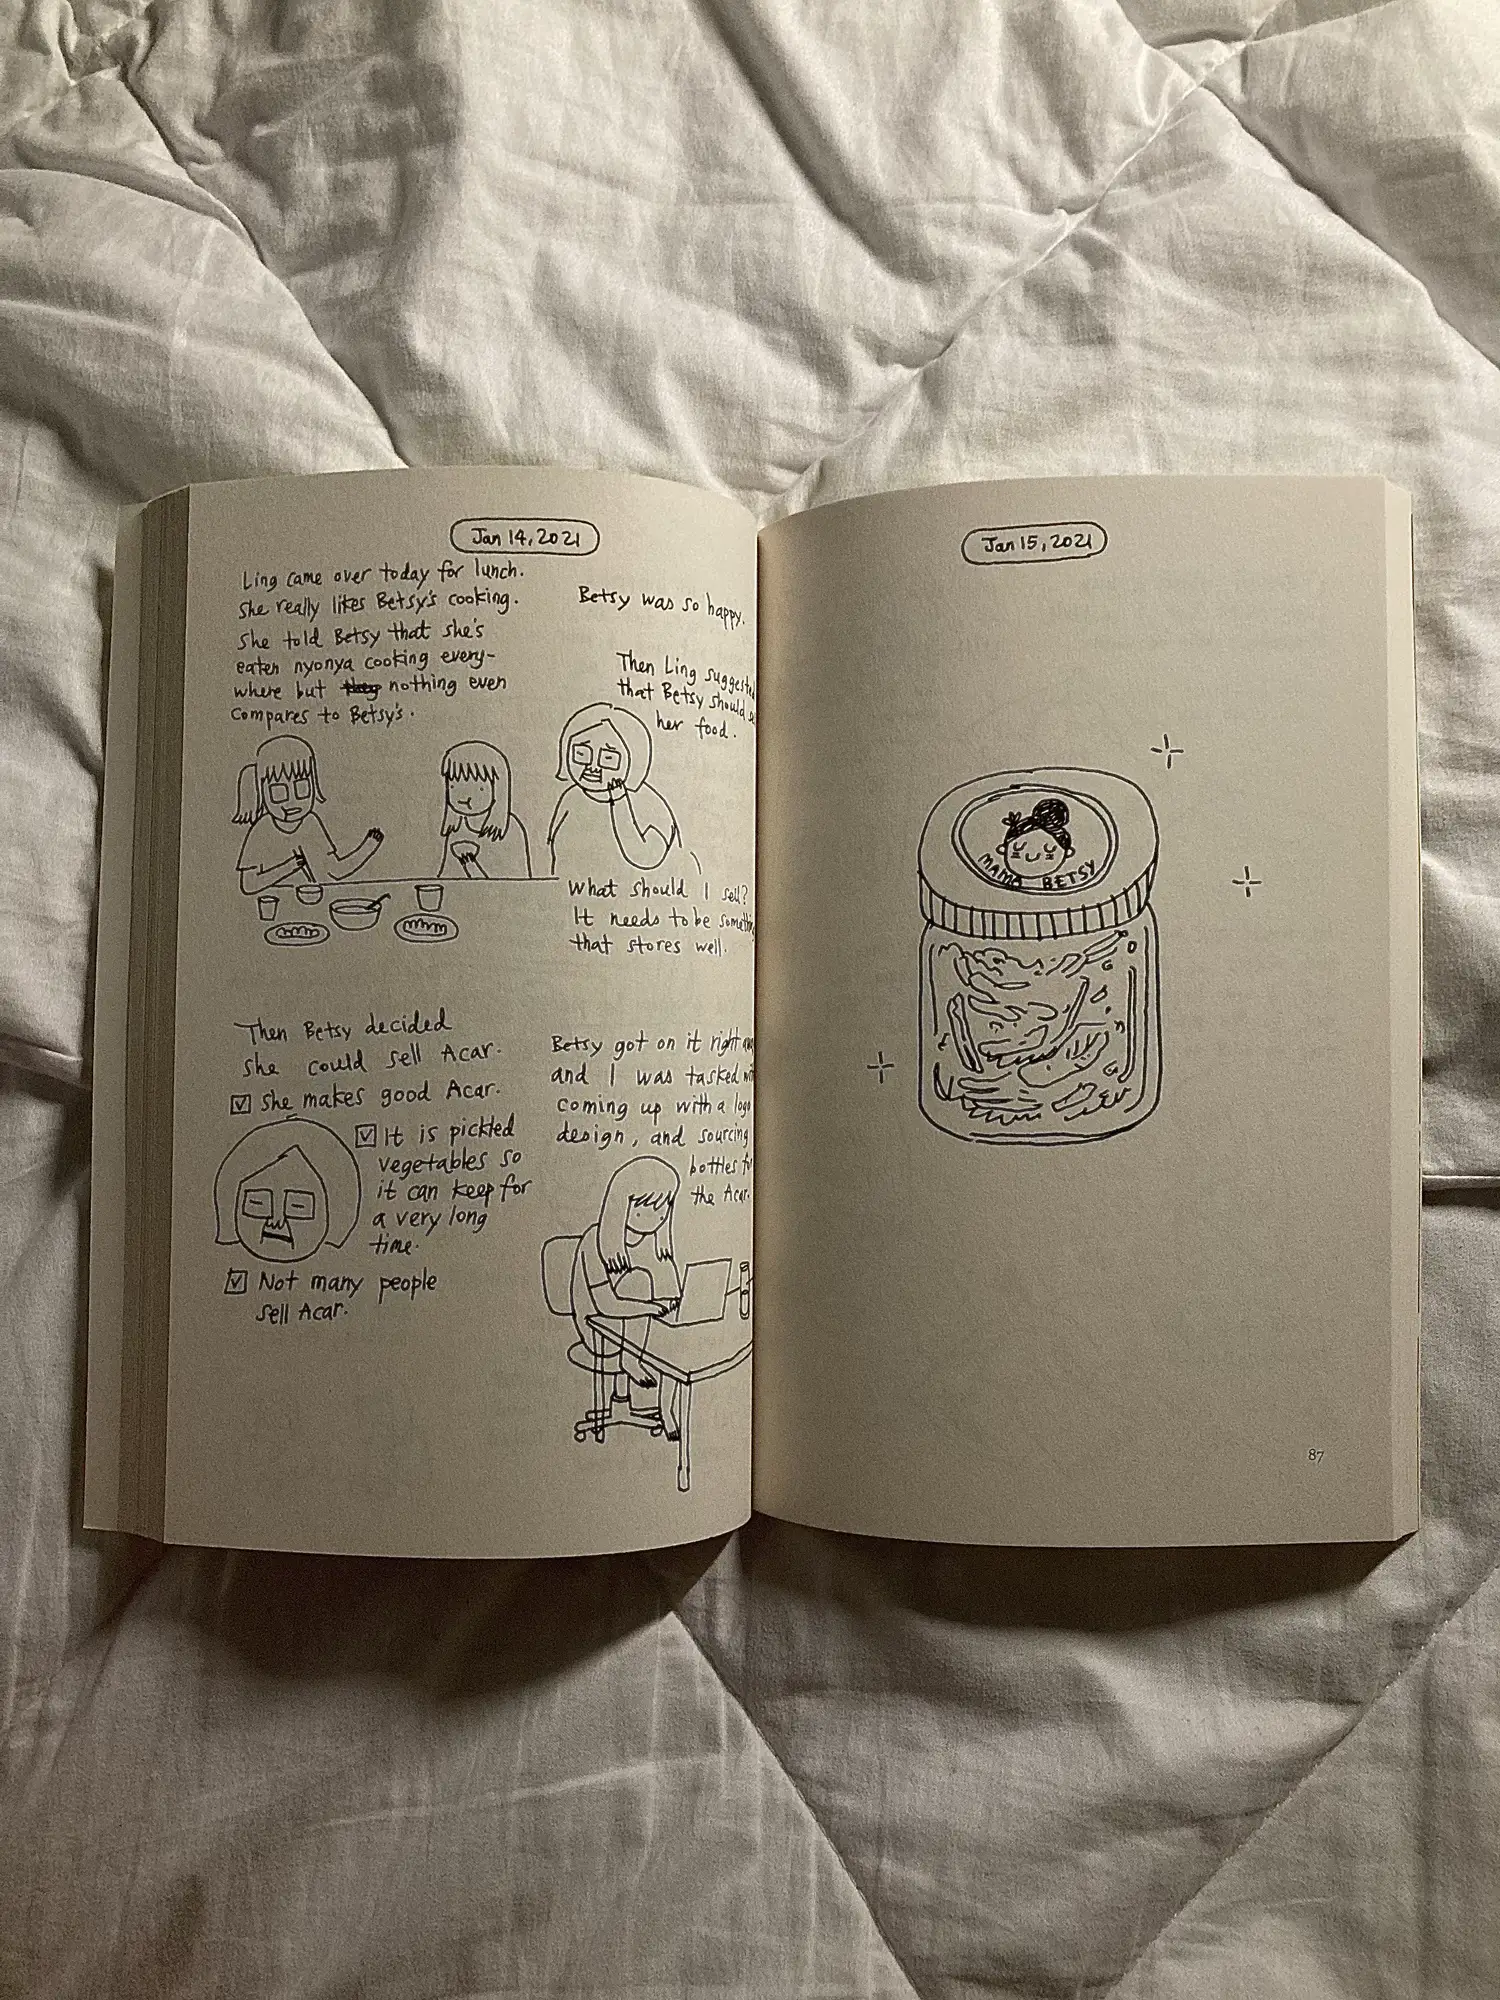 Jan 14, 2021
Ling came over today for lunch.
She really likes Betsy's cooking.
She told Betsy that she's
eaten nyonya cooking every-
where but they nothing even
compares to Betsy's.
Betsy was so happy.
Then Ling suggested
that Betsy should
her food.
What should I sell?
It needs to be
that stores well.
Then Betsy decided
she could sell Acar.
She makes good Acar.
It is pickled
vegetables so
it can keep for
a very long
time.
Not many people
sell Acar.
Betsy got on it right
and I was tasked
coming up with a logo
design, and sourcing
bottles
the Acar.
Jan 15, 2021
MAMA BETSY
87